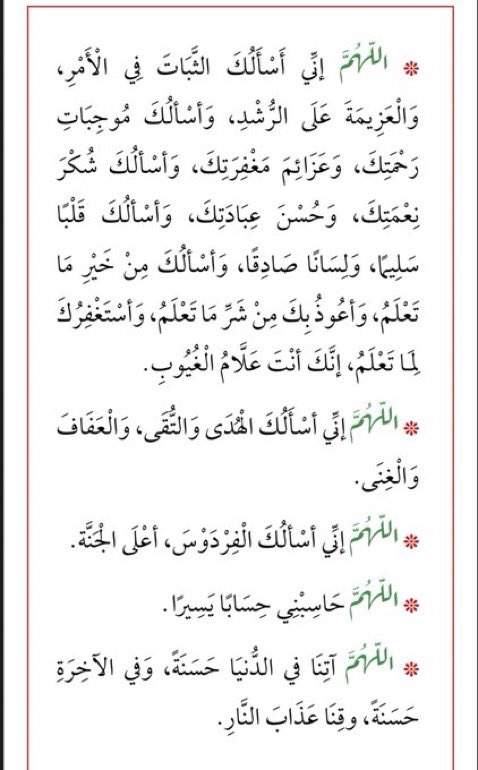 * اللَّهُمَّ إِنِّي أَسْأَلُكَ الثَّبَاتَ فِي الْأَمْرِ،
وَالْعَزِيمَةَ عَلَى الرُّشْدِ، وَأَسْأَلُكَ مُوجِبَاتِ
رَحْمَتِكَ، وَعَزَائِمَ مَغْفِرَتِكَ، وَأَسْأَلُكَ شُكْرَ
نِعْمَتِكَ، وَحُسْنَ عِبَادَتِكَ، وَأَسْأَلُكَ قَلْبًا
سَلِيمًا، وَلِسَانًا صَادِقًا، وَأَسْأَلُكَ مِنْ خَيْرِ مَا
تَعْلَمُ، وَأَعُوذُ بِكَ مِنْ شَرِّ مَا تَعْلَمُ، وَأَسْتَغْفِرُكَ
لِمَا تَعْلَمُ، إِنَّكَ أَنْتَ عَلَّامُ الْغُيُوبِ.
* اللَّهُمَّ إِنِّي أَسْأَلُكَ الْهُدَى وَالتُّقَى، وَالْعَفَافَ
وَالْغِنَى.
* اللَّهُمَّ إِنِّي أَسْأَلُكَ الْفِرْدَوْسَ، أَعْلَى الْجَنَّةِ.
* اللَّهُمَّ حَاسِبْنِي حِسَابًا يَسِيرًا.
* اللَّهُمَّ آتِنَا فِي الدُّنْيَا حَسَنَةً، وَفِي الْآخِرَةِ
حَسَنَةً، وقِنَا عَذَابَ النَّارِ.